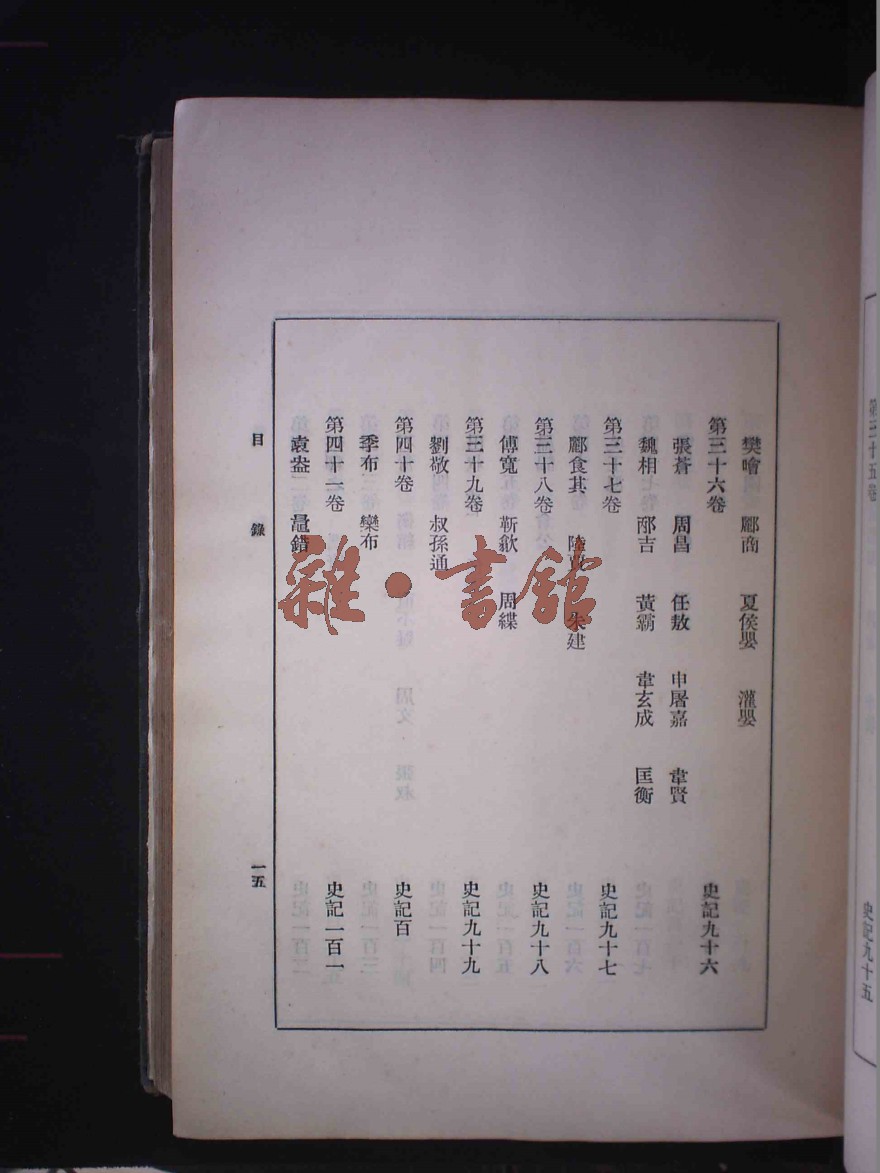 第三十五卷 史記九十五
樊噲 酈商 夏侯嬰 灌嬰
第三十六卷 史記九十六
張蒼 周昌 任敖 申屠嘉 韋賢
魏相 邴吉 黃霸 韋玄成 匡衡
第三十七卷 史記九十七
酈食其 陸賈 朱建
第三十八卷 史記九十八
傅寬 靳歙 周緤
第三十九卷 史記九十九
劉敬 叔孫通
第四十卷 史記百
季布 欒布
第四十一卷 史記一百一
袁盎 鼂錯
目 錄 一五
雜·書館